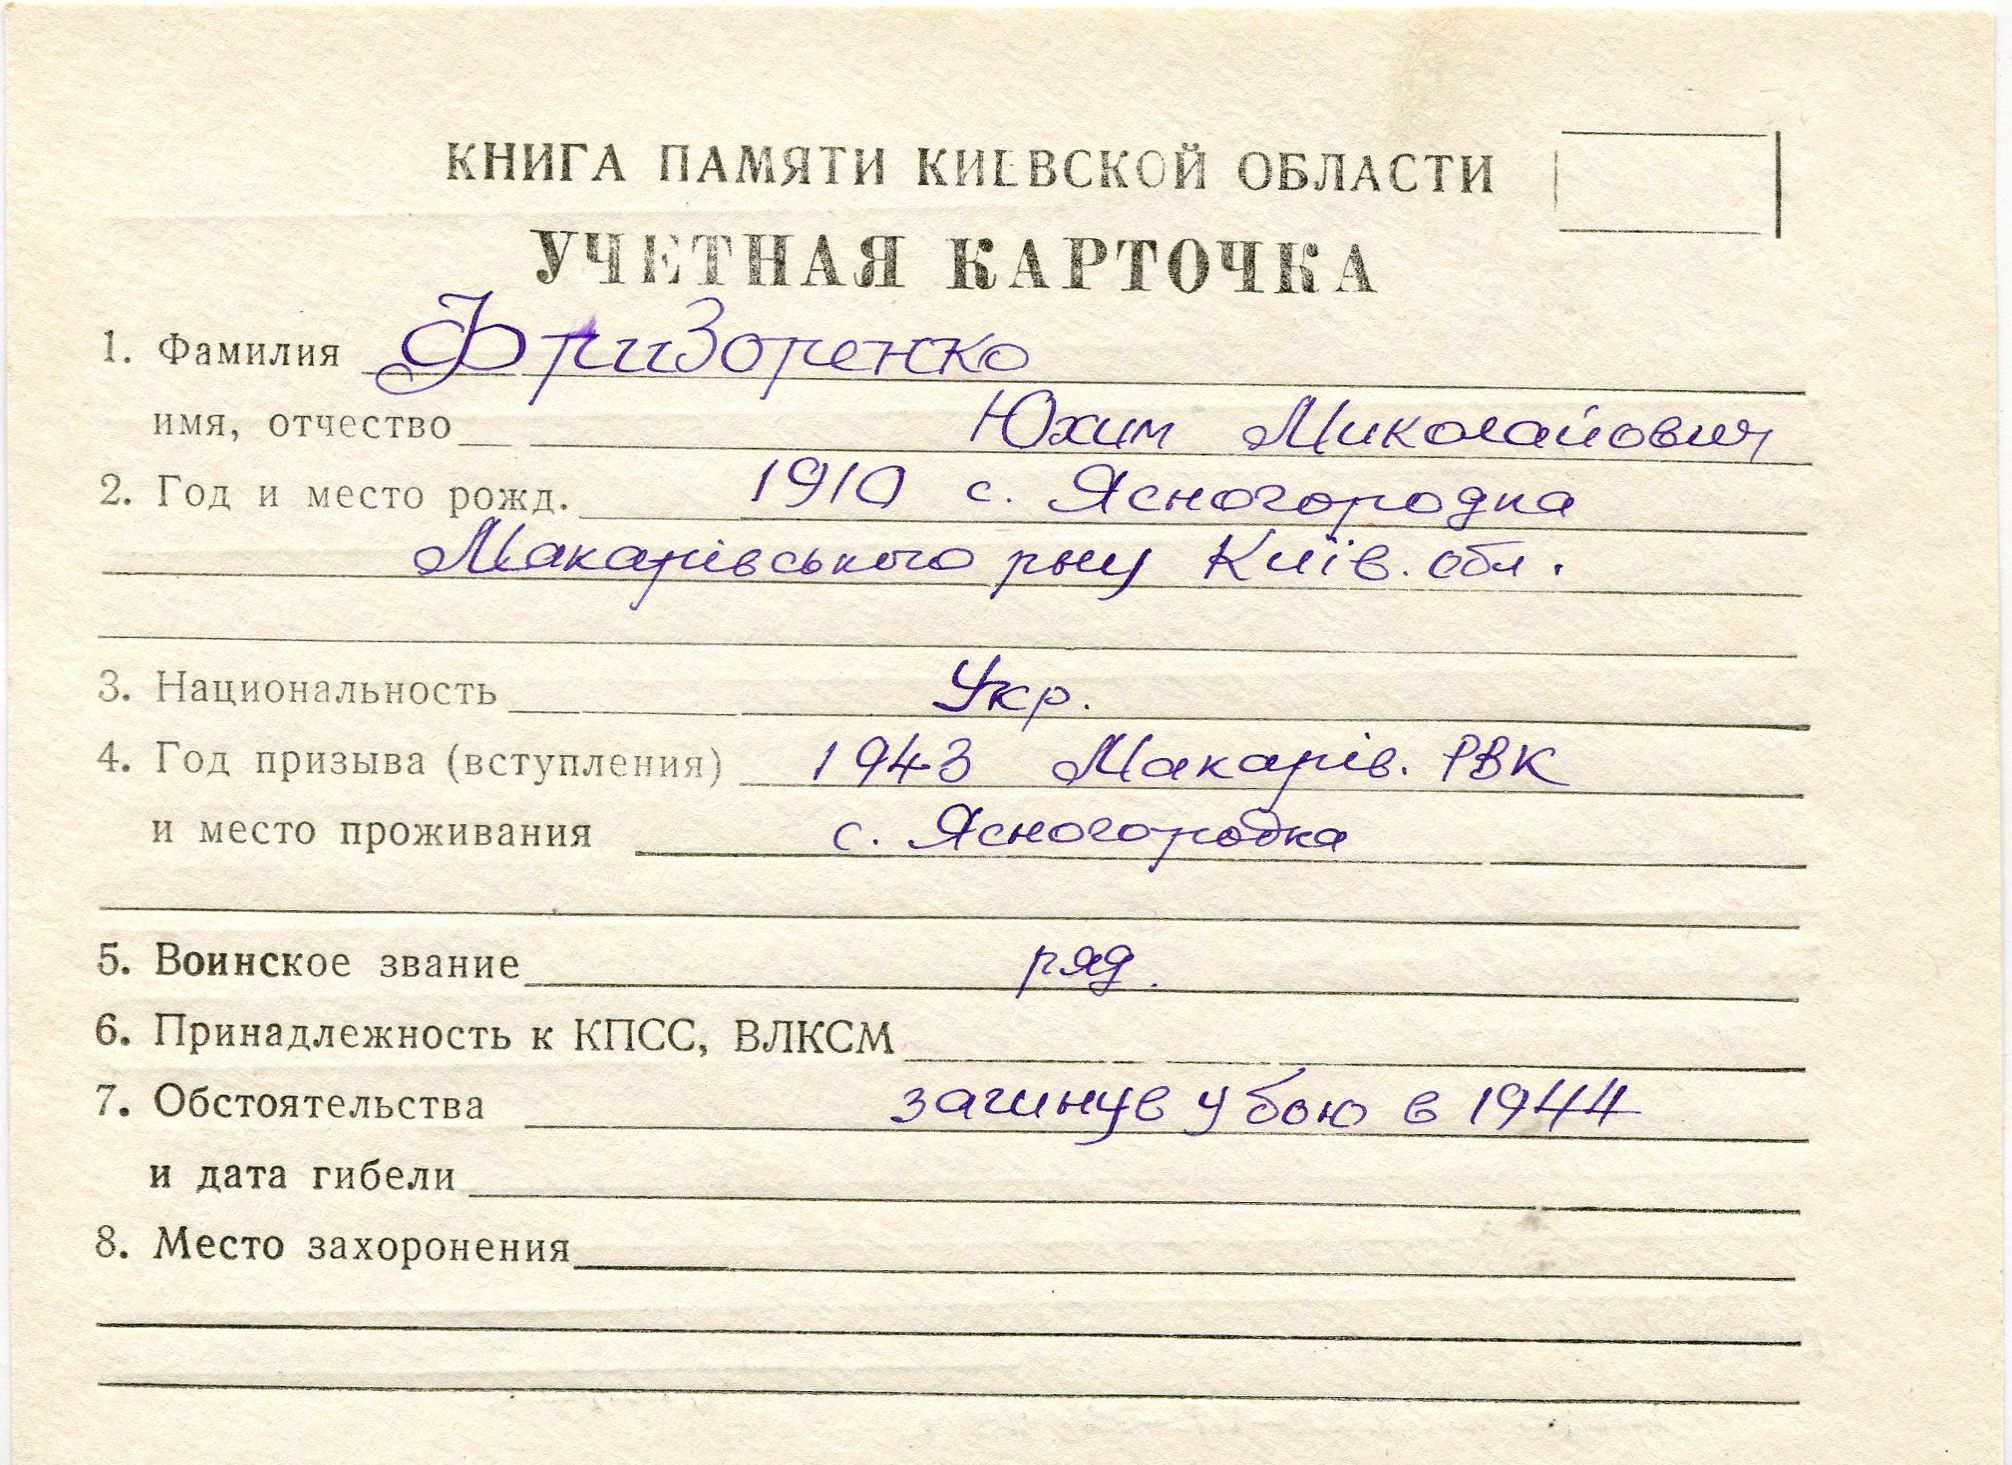 КНИГА ПАМЯТИ КИЕВСКОЙ ОБЛАСТИ
УЧЕТНАЯ КАРТОЧКА
1. Фамилия Фризоренко
имя, отчество Юхим Миколайович
2. Год и место рожд. 1910 с. Ясногородка
Макарівського р-ну Київ. обл.
3. Национальность Укр.
4. Год призыва (вступления) 1943 Макарів. РВК
и место проживания с. Ясногородка
5. Воинское звание ряд.
6. Принадлежность к КПСС, ВЛКСМ
7. Обстоятельства загинув у бою в 1944
и дата гибели
8. Место захоронения